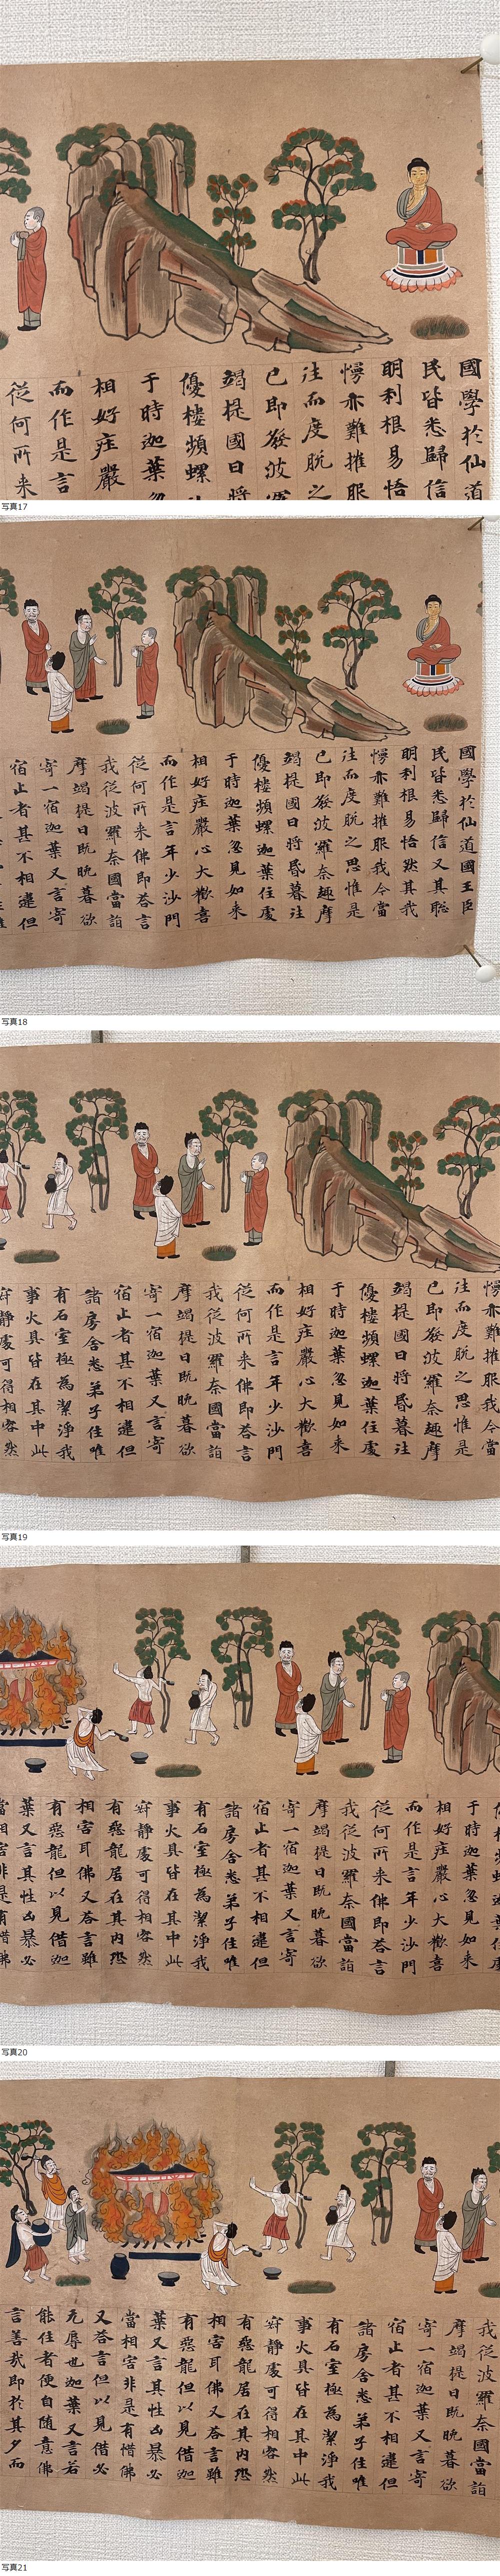 國學於仙道
民皆悉歸信
明利根易悟
慢亦難摧服
往而度脫之
已即發波
竭提國日將
優樓頻螺
于時迦葉
相好莊嚴
而作是言
從何所来
写真17
國學於仙道國王臣
民皆悉歸信又其聡
明利根易悟然其我
慢亦難摧服我今當
往而度脫之思惟是
已即發波羅奈趣摩
竭提國日將昏暮往
優樓頻螺迦葉住處
于時迦葉忽見如来
相好莊嚴心大歡喜
而作是言年少沙門
從何所来佛即荅言
我從波羅奈國當詣
摩竭提日既晩暮欲
寄一宿迦葉又言寄
宿止者甚不相違但
写真18
慢亦難摧服我今當
往而度脫之思惟是
已即發波羅奈趣摩
竭提國日將昏暮往
優樓頻螺迦葉住處
于時迦葉忽見如来
相好莊嚴心大歡喜
而作是言年少沙門
從何所来佛即荅言
我從波羅奈國當詣
摩竭提日既晩暮欲
寄一宿迦葉又言寄
宿止者甚不相違但
諸房舍悉弟子住唯
有石室極為潔淨我
事火具皆在其中此
寂靜處可得相容然
写真19
于時迦葉忽見如来
相好莊嚴心大歡喜
而作是言年少沙門
從何所来佛即荅言
我從波羅奈國當詣
摩竭提日既晩暮欲
寄一宿迦葉又言寄
宿止者甚不相違但
諸房舍悉弟子住唯
有石室極為潔淨我
事火具皆在其中此
寂靜處可得相容然
有惡龍居在其内恐
相害耳佛又荅言雖
有惡龍但以見借迦
葉又言其性凶暴必
當相害非是有惜佛
写真20
我從波羅奈國當詣
摩竭提日既晩暮欲
寄一宿迦葉又言寄
宿止者甚不相違但
諸房舍悉弟子住唯
有石室極為潔淨我
事火具皆在其中此
寂靜處可得相容然
有惡龍居在其内恐
相害耳佛又荅言雖
有惡龍但以見借迦
葉又言其性凶暴必
當相害非是有惜佛
又荅言但以見借必
无辱也迦葉又言若
能住者便自随意佛
言善我即於其夕而
写真21